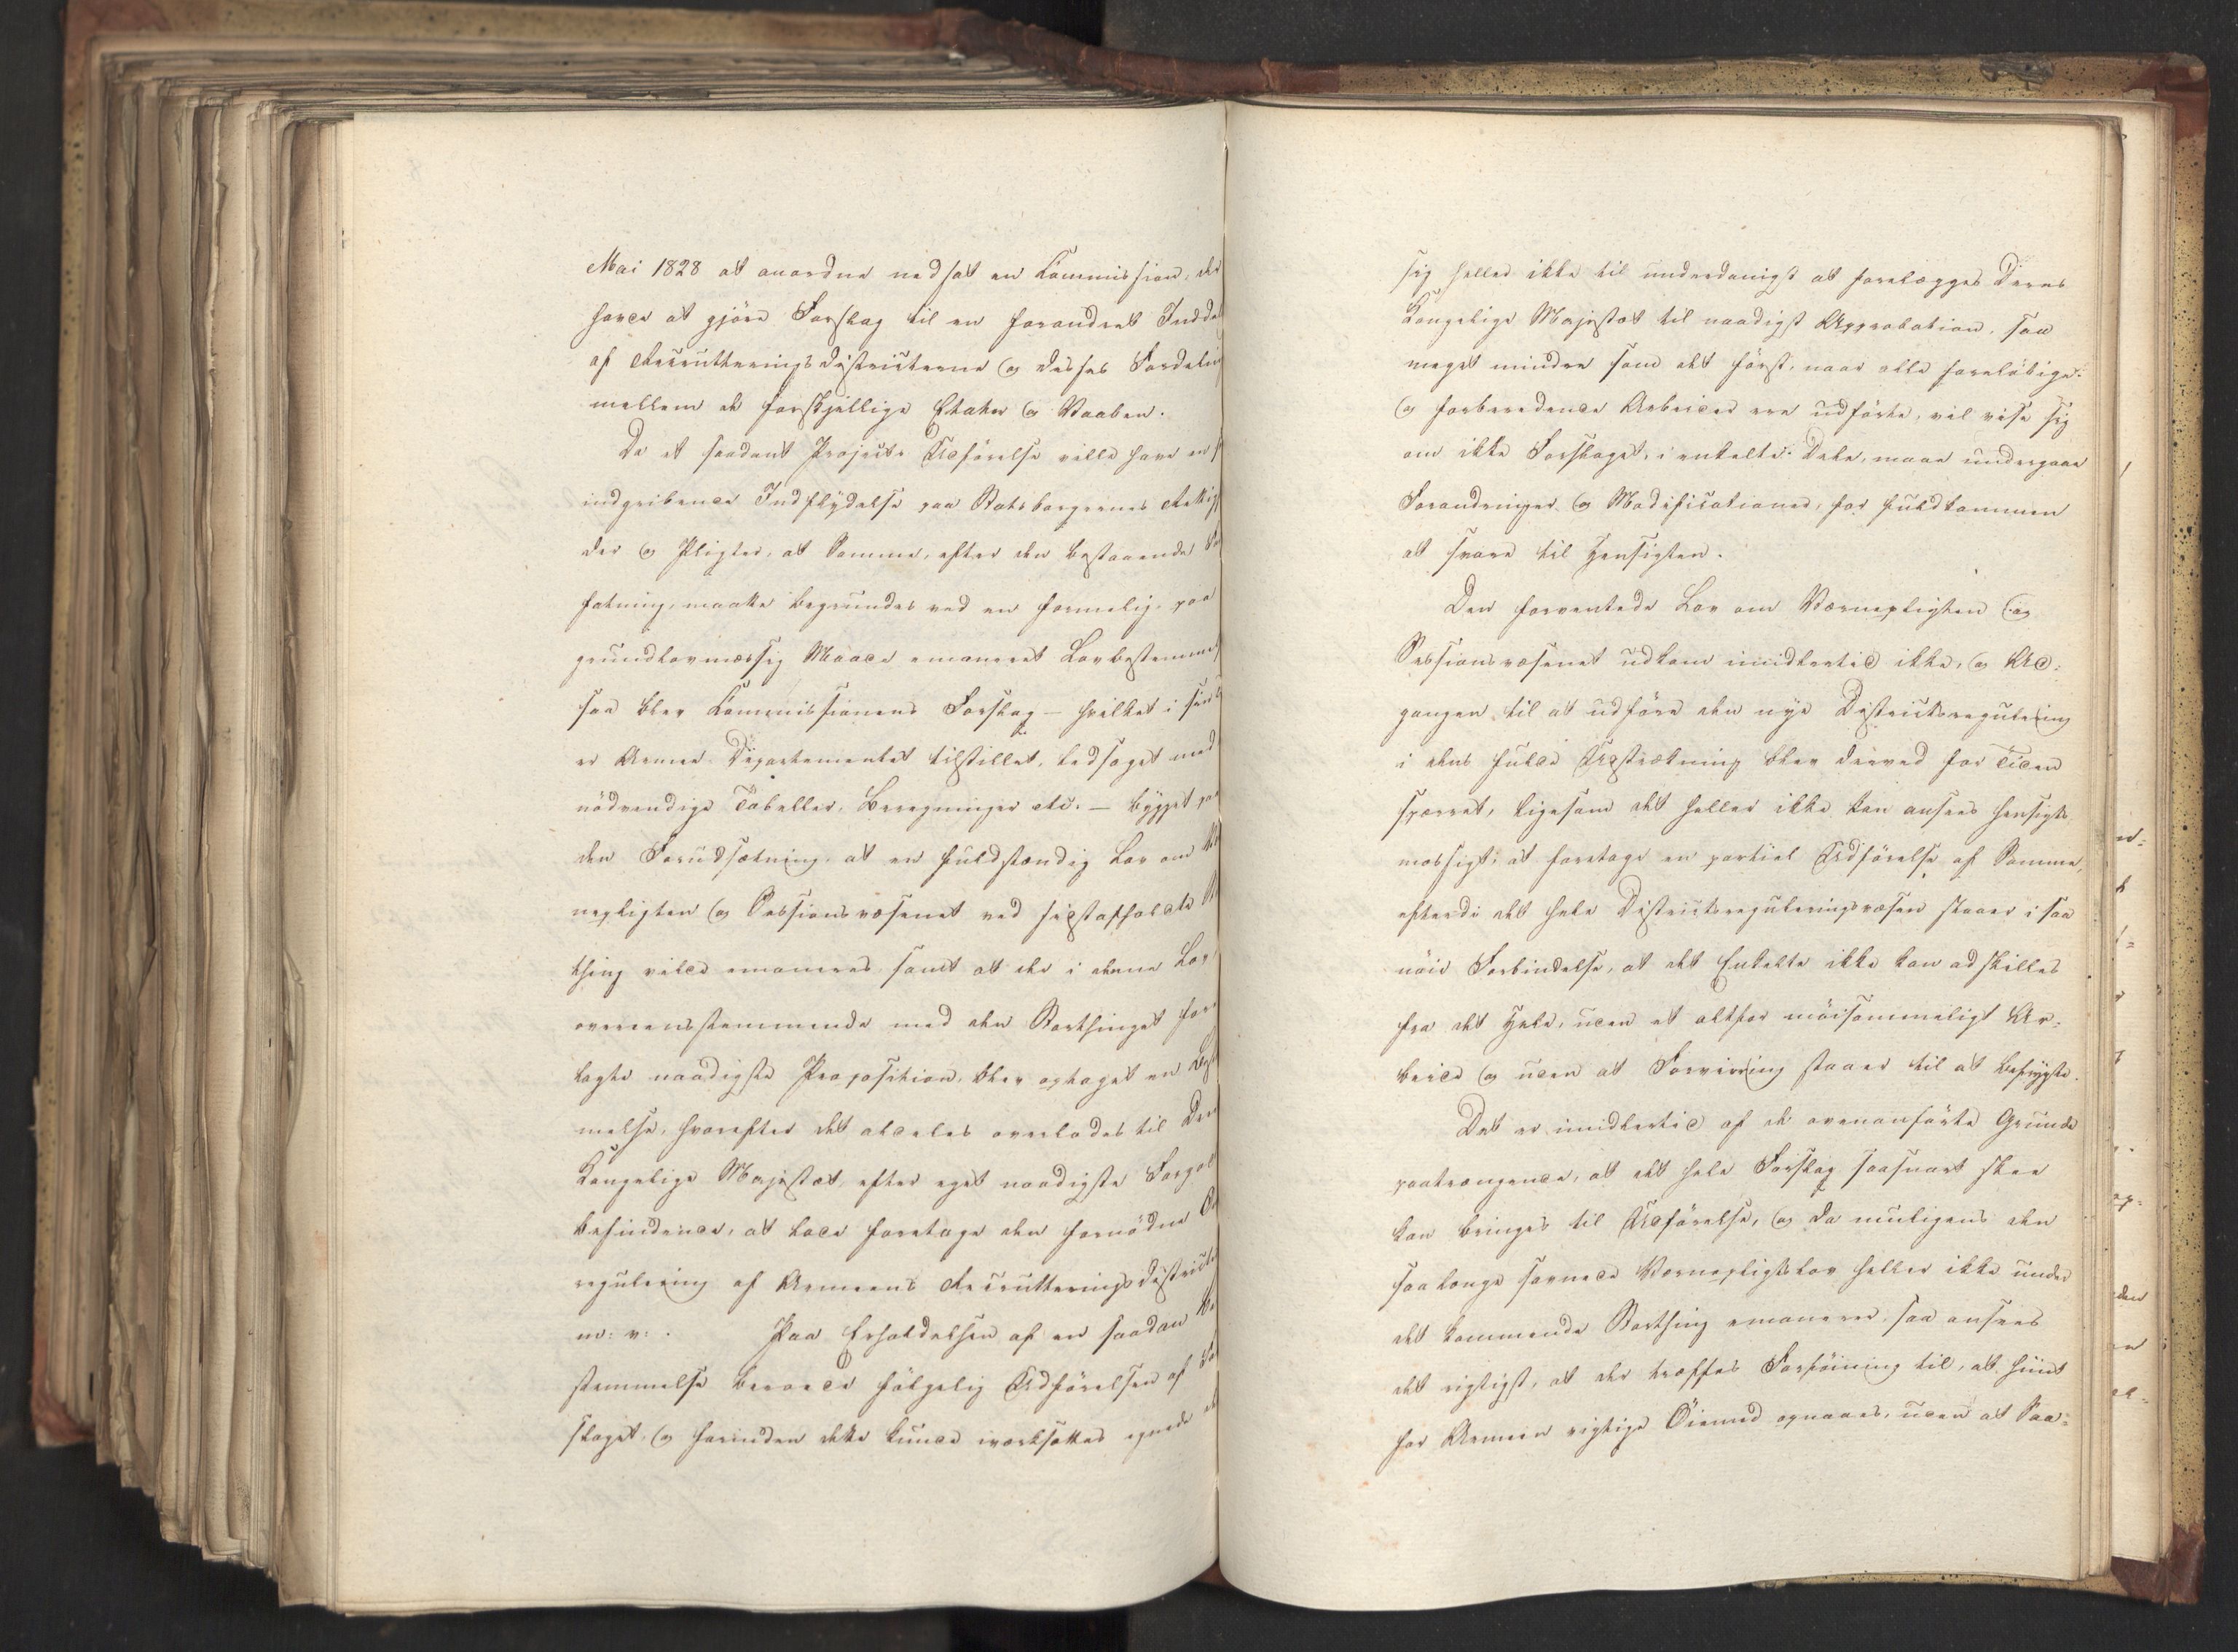 Mai 1828 at anordne nedsat en Kommission, der
havde at gjöre Forslag til en forandret Indde
af Recrutteringsdistricterne og disses Fordelin
mellem de forskjellige Etater og Vaaben.
Da et saadant Projects Udförelse vilde have en s
indgribende Indflydelse paa Statsborgernes Rettig
der og Pligter, at Samme, efter den bestaaende For
fatning, maatte begrundes ved en formelig, paa
grundlovmæssig Maade emaneret Lovbestemmel
saa blev Kommissionens Forslag — hvilket i sin
er Armee Departementet tilstillet, ledsaget med
nödvendige Tabeller, Beregninger etc. — bygget paa
den Forudsætning, at en fuldstændig Lov om Vær
nepligten og Sessionsvæsenet ved sidstafholdte St
thing vilde emaneres samt at der i denne Lov
overeensstemmende med den Storthinget fore
lagte naadigste Proposition, blev optaget en Best
melse, hvorefter det aldeles overlodes til Deres
Kongelige Majestæt, efter eget naadigste Forgodt
befindende, at lade foretage den fornödne
regulering af Armeens Recrutteringsdistricter
m: v: . Paa Erholdelsen af en saadan Be
stemmelse beroede fölgelig Udförelsen af For
slaget, og forinden dette kunde iværksættes egnede det
sig heller ikke til underdanigst at forelægges Deres
Kongelige Majestæt til naadigst Approbation, saa
meget mindre som det först, naar alle forelöbige
og forberedende Arbeider ere udförte, vil vise sig
om ikke Forslaget, i enkelte Dele, maae undergaae
Forandringer og Modificationer, for fuldkommen
at svare til Hensigten.
Den forventede Lov om Værnepligten og
Sessionsvæsenet udkom imidlertid ikke, og Ad=
gangen til at udföre den nye Districtsregulering
i dens fulde Udstrækning blev derved for Tiden
spærret, ligesom det heller ikke kan ansees hensigts
mæssigt, at foretage en partiel Udförelse af Samme,
efterdi det hele Districtsreguleringsvæsen staaer i saa
nöie Forbindelse, at det Enkelte ikke kan adskilles
fra det Hele, uden et altfor möisommeligt Ar=
beide og uden at Forvirring staaer til at befrygte.
Det er imidlertid af de ovenanförte Grunde
paatrængende, at det hele Forslag saasnart skee
kan bringes til Udförelse, og da muligens den
saa længe savnede Værnepligtslov heller ikke under
det kommende Storthing emanerer, saa ansees
det rigtigst, at der træffes Forföining til, at hiint
for Armeen vigtige Öiemed opnaaes, uden at Saa=